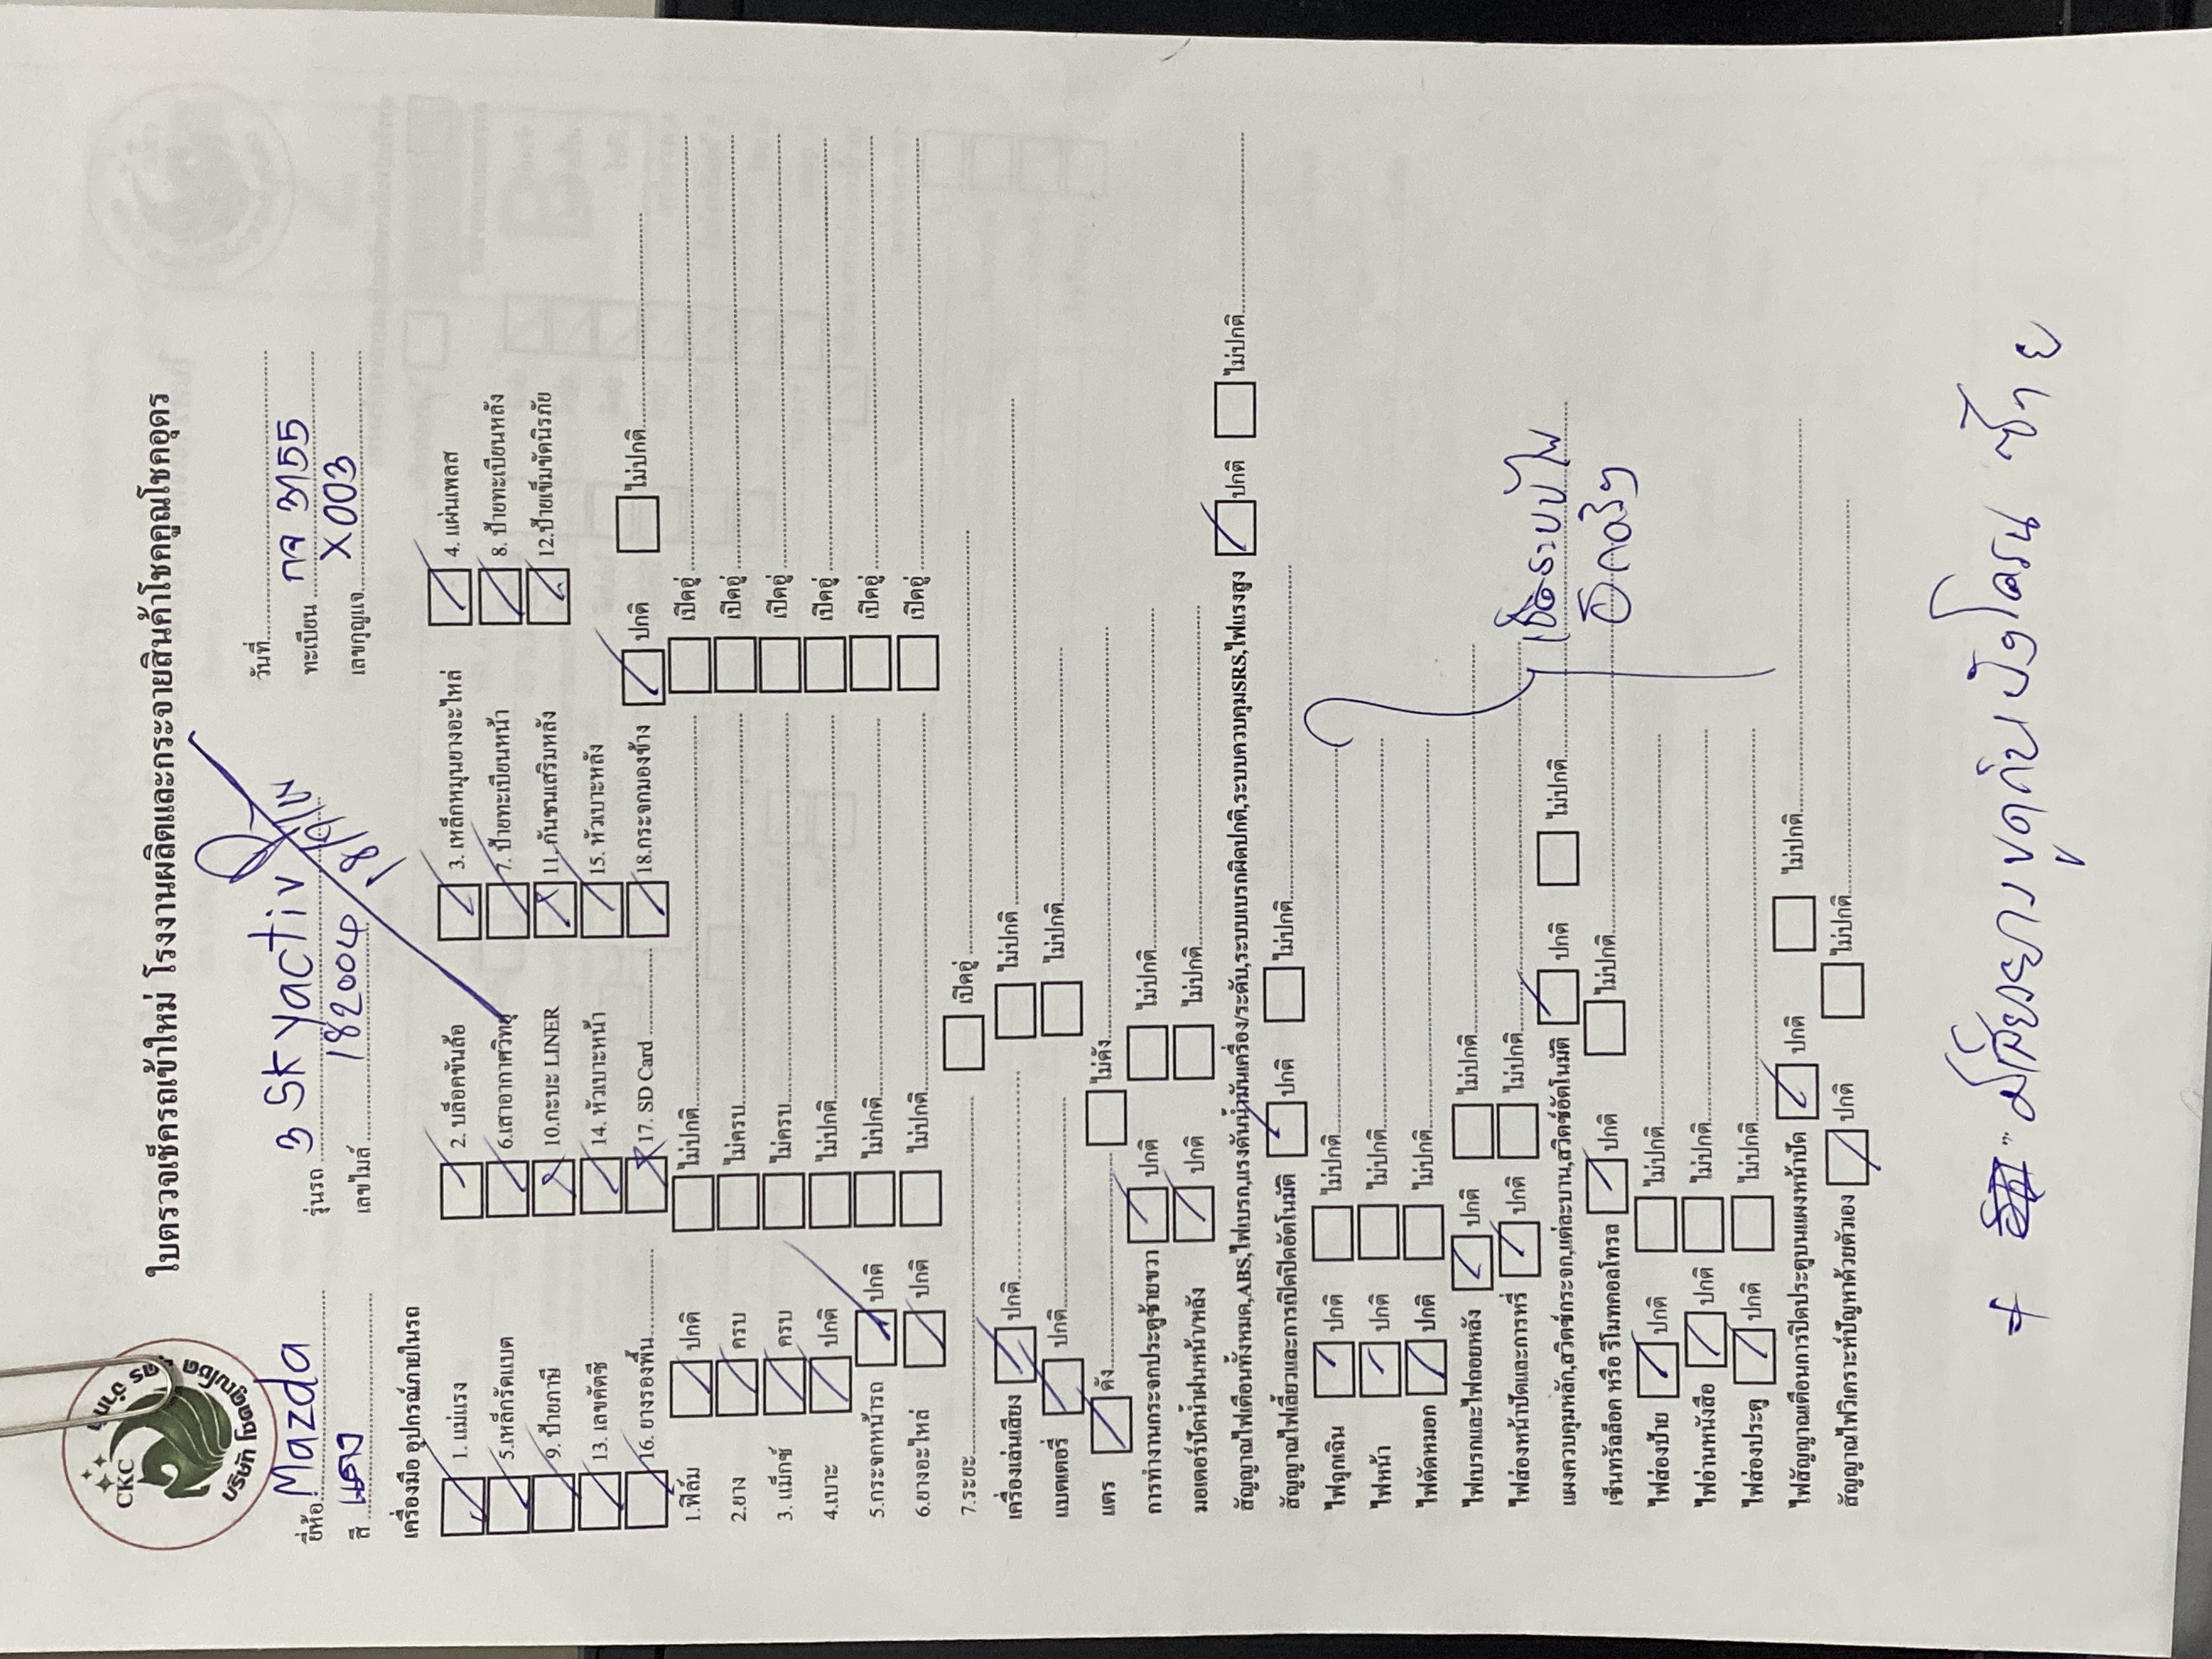 CKC
บริษัท โชคคูณโชค อุดร จำกัด
ใบตรวจเช็ครถเข้าใหม่ โรงงานผลิตและกระจายสินค้าโชคคูณโชคอุดร
วันที่
ยี่ห้อ Mazda รุ่นรถ 3 Skyactiv ทะเบียน กจ 3155
สี แดง เลขไมล์ 182004 เลขกุญแจ X003
เครื่องมือ อุปกรณ์ภายในรถ
1. แม่แรง 2. บล็อคขันล้อ 3. เหล็กหมุนยางอะไหล่ 4. แผ่นเพลส
5.เหล็กรัดแบต 6.เสาอากาศวิทยุ 7. ป้ายทะเบียนหน้า 8. ป้ายทะเบียนหลัง
9. ป้ายภาษี 10.กะบะ LINER 11.กันชนเสริมหลัง 12.ป้ายเข็มขัดนิรภัย
13. เลขคัตซี 14. หัวเบาะหน้า 15. หัวเบาะหลัง
16. ยางรองพื้น 17. SD Card 18.กระจกมองข้าง ปกติ ไม่ปกติ
1.ฟิล์ม ปกติ ไม่ปกติ เปิดอู่
2.ยาง ครบ ไม่ครบ เปิดอู่
3. แม็กซ์ ครบ ไม่ครบ เปิดอู่
4.เบาะ ปกติ ไม่ปกติ เปิดอู่
5.กระจกหน้ารถ ปกติ ไม่ปกติ เปิดอู่
6.ยางอะไหล่ ปกติ ไม่ปกติ เปิดอู่
7.ระยะ เปิดอู่
เครื่องเล่นเสียง ปกติ ไม่ปกติ
แบตเตอรี่ ปกติ ไม่ปกติ
แตร ดัง ไม่ดัง
การทำงานกระจกประตูซ้ายขวา ปกติ ไม่ปกติ
มอเตอร์ปัดน้ำฝนหน้า/หลัง ปกติ ไม่ปกติ
สัญญาณไฟเตือนทั้งหมด,ABS,ไฟเบรก,แรงดันน้ำมันเครื่อง/ระดับ,ระบบเบรกผิดปกติ,ระบบควบคุมSRS,ไฟแรงสูง ปกติ ไม่ปกติ
สัญญาณไฟเลี้ยวและการเปิดปิดอัตโนมัติ ปกติ ไม่ปกติ
ไฟฉุกเฉิน ปกติ ไม่ปกติ
ไฟหน้า ปกติ ไม่ปกติ
ไฟตัดหมอก ปกติ ไม่ปกติ
ไฟเบรกและไฟถอยหลัง ปกติ ไม่ปกติ
ไฟส่องหน้าปัดและการหรี่ ปกติ ไม่ปกติ
แผงควบคุมหลัก,สวิตช์กระจก,แต่ละบาน,สวิตช์อัตโนมัติ ปกติ ไม่ปกติ
เช็คระบบไฟ
เซ็นทรัลล็อค หรือ รีโมทคอลโทรล ปกติ ไม่ปกติ
ไฟส่องป้าย ปกติ ไม่ปกติ
ไฟอ่านหนังสือ ปกติ ไม่ปกติ
ไฟส่องประตู ปกติ ไม่ปกติ
ไฟสัญญาณเตือนการปิดประตูบนแผงหน้าปัด ปกติ ไม่ปกติ
สัญญาณไฟวิเคราะห์ปัญหาด้วยตัวเอง ปกติ ไม่ปกติ
+ มีเสียงยางขูดกับบังโครน ซ้าย